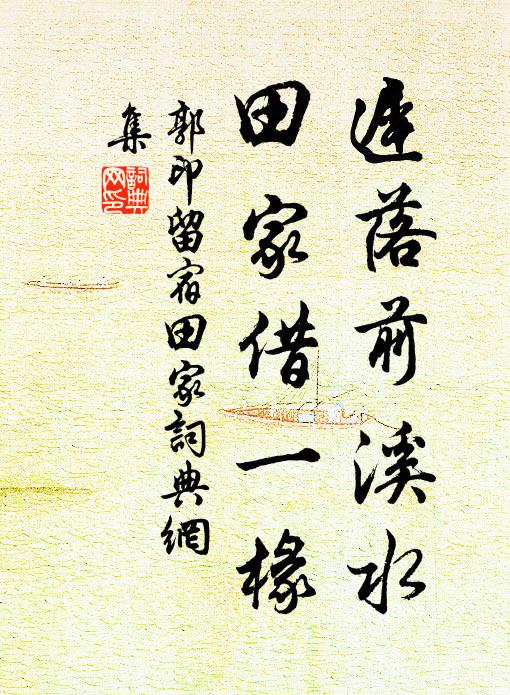 遲落前溪水
田家借一椽
郭印留宿田家詞典網
集
詞典
网印